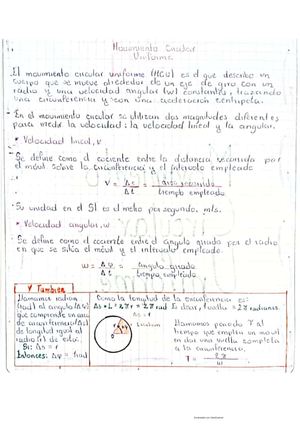 Movimiento Circular
Uniforme
El movimiento circular uniforme (MCU) es el que describe un
cuerpo que se mueve alrededor de un eje de giro con un
radio y una velocidad angular (w) constantes, trazando
una circunferencia y con una aceleración centripeta.
En el movimiento circular se utilizan dos magnitudes diferentes
para medir la velocidad: la velocidad lineal y la angular.
Velocidad lineal, v
Se define como el cociente entre la distancia recorrida por
el móvil sobre la circunferencia y el intervalo empleado
V = Δs = arco recorrido
Δt tiempo empleado
Su unidad en el SI es el metro por segundo, m/s.
Velocidad angular, w
Se define como el cociente entre el ángulo girado por el radio
en que se sitúa el móvil y el intervalo empleado.
w = Δφ = ángulo girado
Δt tiempo empleado
También
Llamamos radian
(rad) al ángulo (Δφ)
que comprende un arco
de circunferencia (Δs)
de longitud igual al
radio (r) de esta.
Si: Δs = r
Entonces: Δφ = 1 rad
Como la longitud de la circunferencia es:
radian
Llamamos periodo T al
tiempo que emplea un móvil
en dar una vuelta completa
a la circunferencia.
T = 2π
w